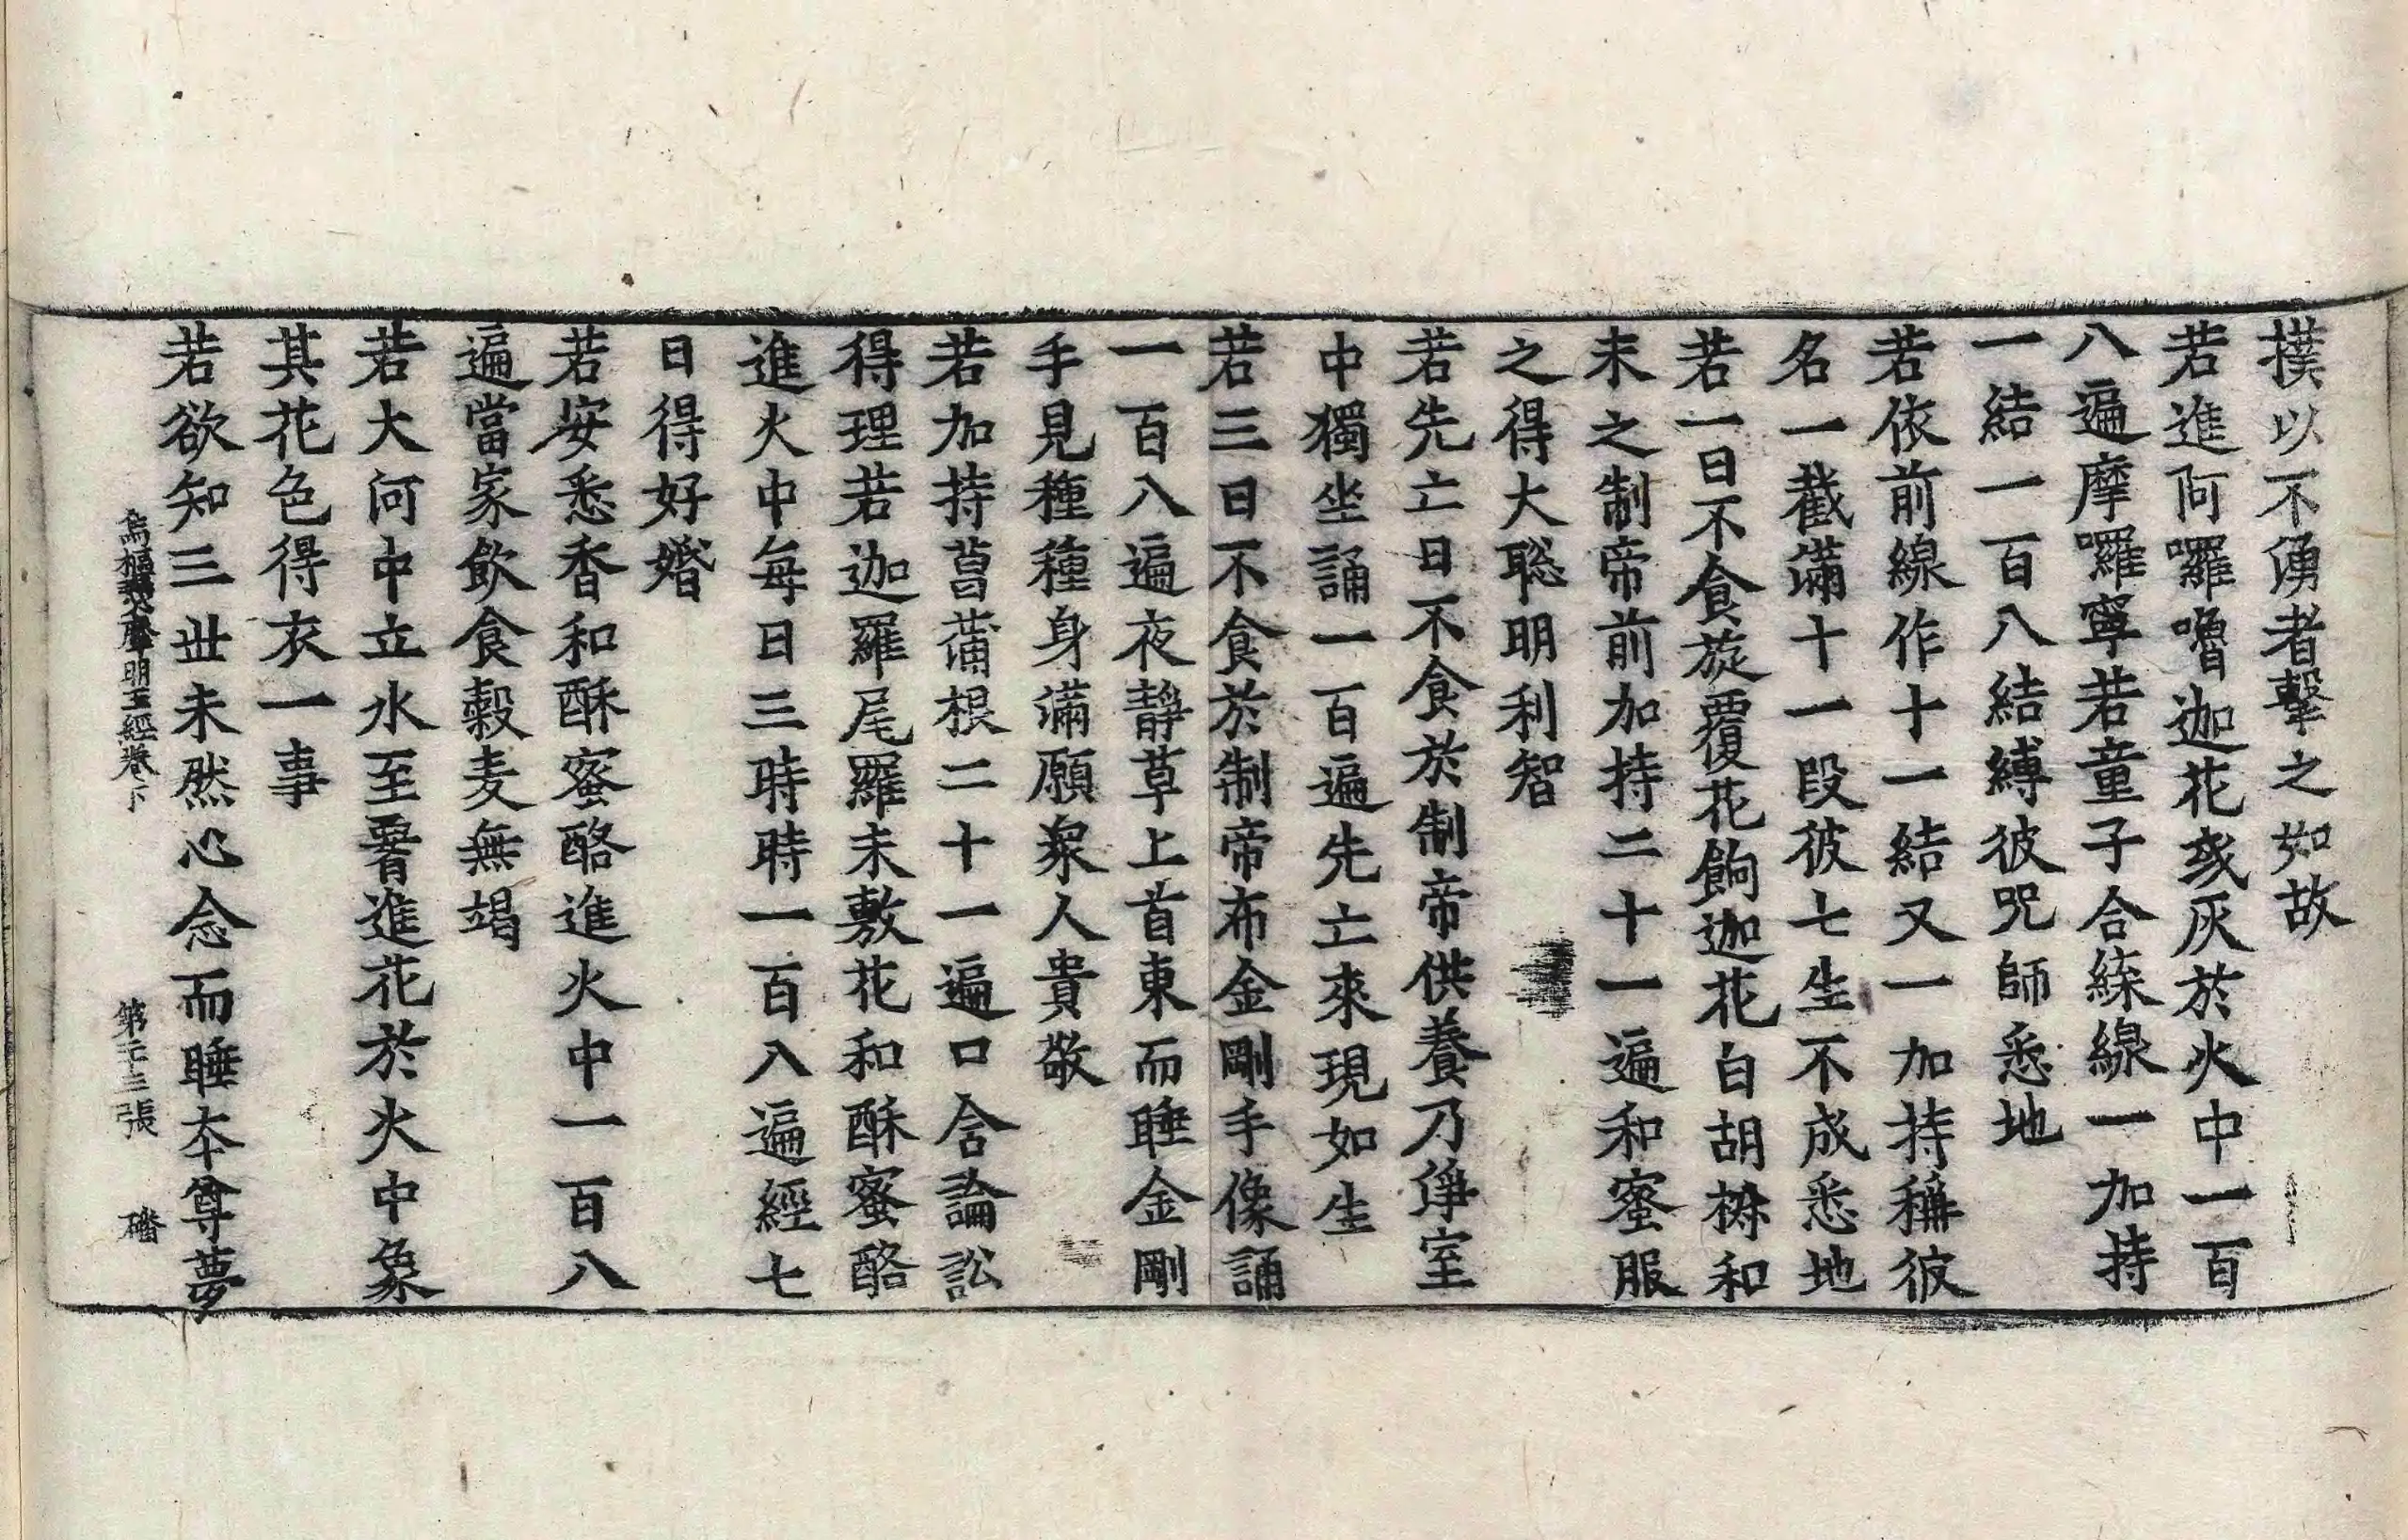 撲以不湧者擊之如故
若進阿囉嚕迦花或灰於火中一百
八遍摩囉寧若童子合綵線一加持
一結一百八結縛彼咒師悉地
若依前線作十一結又一加持稱彼
名一截滿十一段彼七生不成悉地
若一日不食旋覆花餉迦花白胡椒和
末之制帝前加持二十一遍和蜜服
之得大聡明利智
若先亡日不食於制帝供養乃淨室
中獨坐誦一百遍先亡來現如生
若三日不食於制帝布金剛手像誦
一百八遍夜靜草上首東而睡金剛
手見種種身滿願衆人貴敬
若加持菖蒲根二十一遍口含論訟
得理若迦羅尾羅末敷花和酥蜜酪
進火中每日三時時一百八遍經七
日得好婚
若安悉香和酥蜜酪進火中一百八
遍當家飲食穀麦無竭
若大河中立水至臀進花於火中象
其花色得衣一事
若欲知三世未然心念而睡本尊夢
烏樞瑟摩明王經卷下 第二十三張 磻